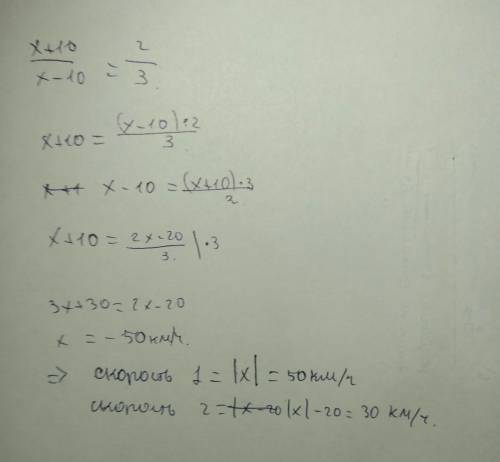 x+10 / x-10 = 2 / 3
x+10 = (x-10)·2 / 3
x-10 = (x+10)·3 / 2
x+10 = 2x-20 / 3. | ·3
3x+30=2x-20
x = -50км/ч.
=> скорость 1 = |x| = 50км/ч
скорость 2 = |x|-20 = 30 км/ч.